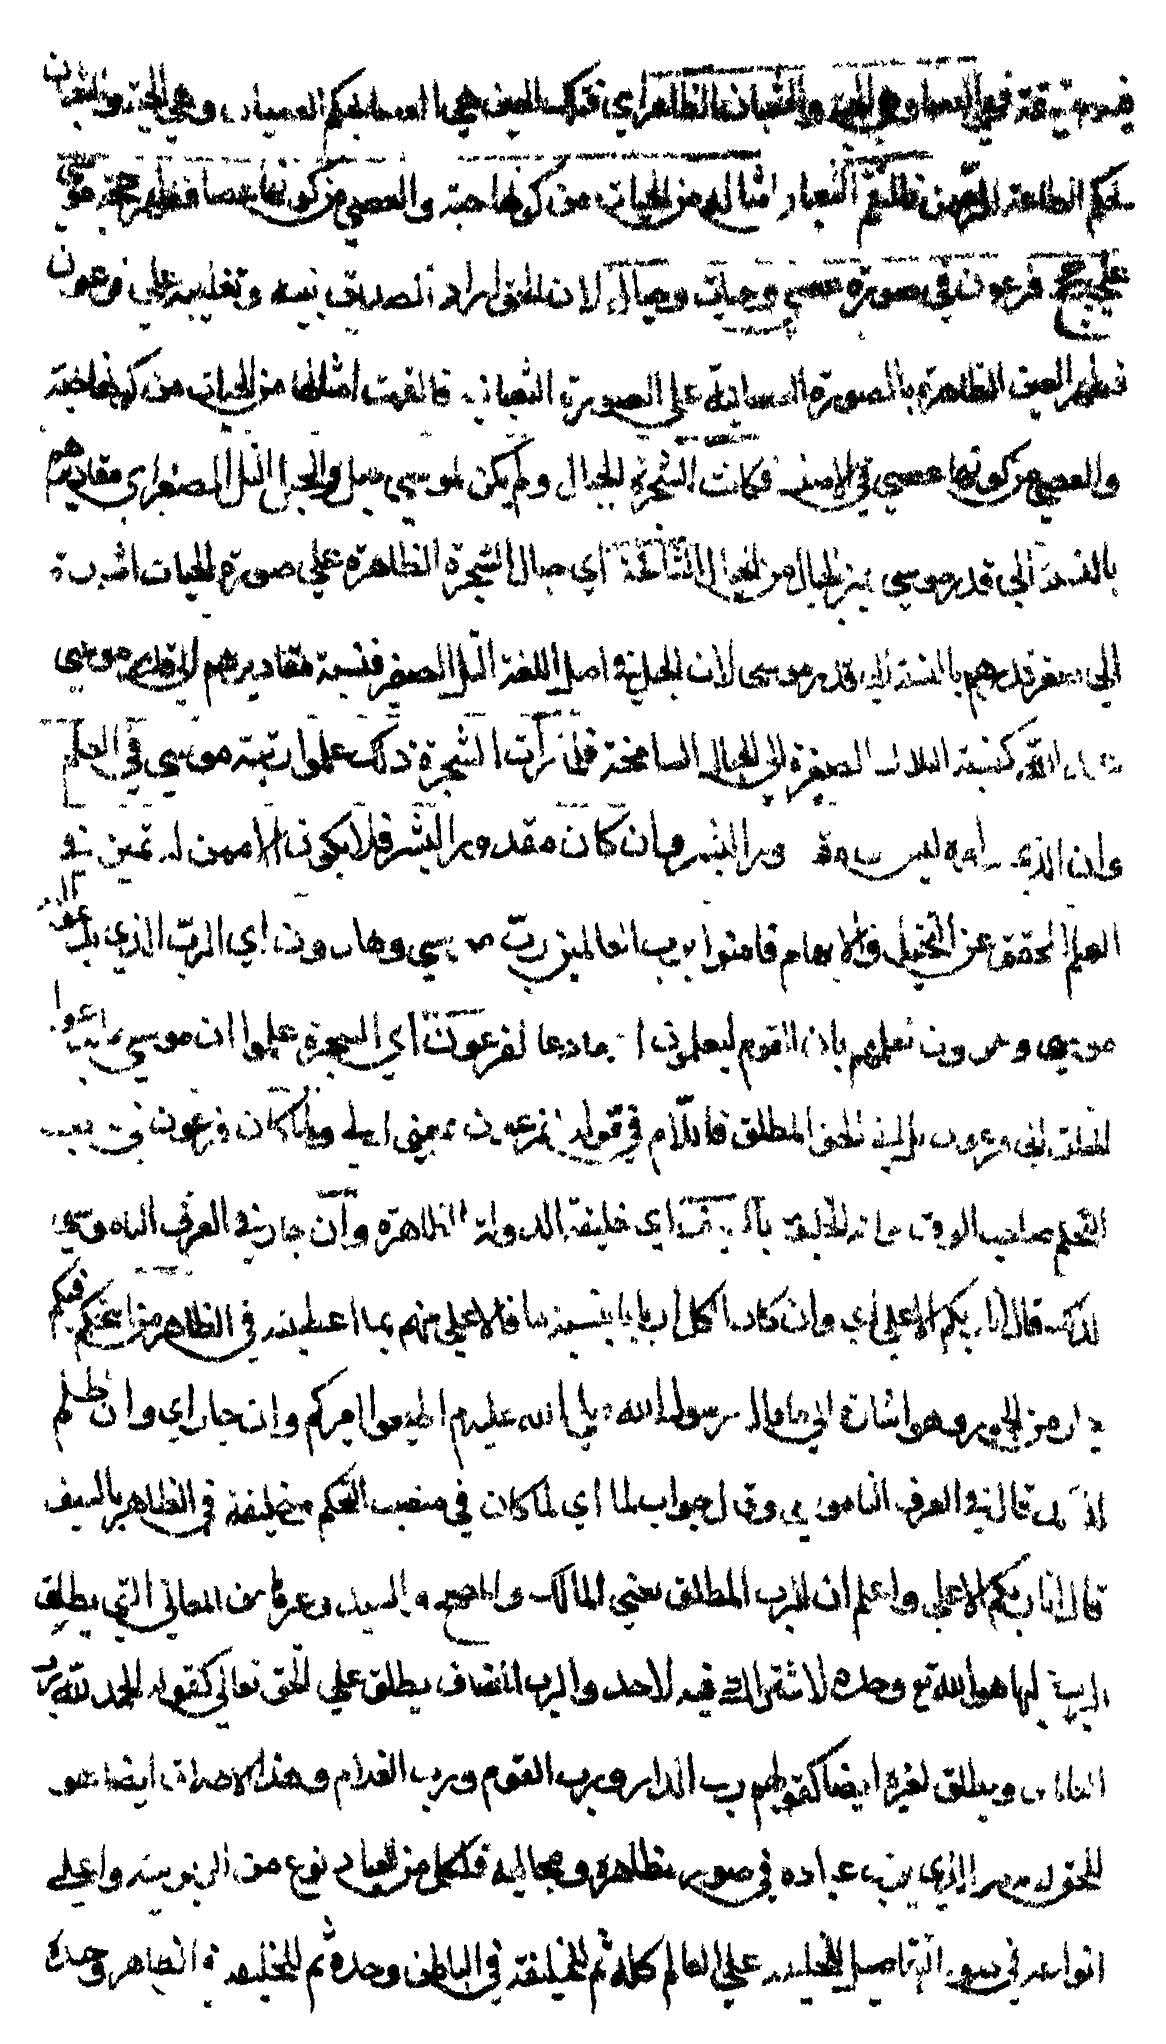 حقيقة فهي العصا وهي الحية والثعبان الظاهر اي فتلك العين هي العصا بحكم العصيان وهي الحية والثعبان
بحكم الطاعة فالتقم الثعبان امثاله من الحيات من كونها حية والعصي من كونها عصا فظهرت حجة موسى
على حجج فرعون في صورة عصي وحيات وحبال لان الحق اراد تصديق نبيه وتغليبه على فرعون
فظهر العين الظاهرة بالصورة العصائية على الصورة الثعبانية فالتقمت امثالها من الحيات من كونها حية
والعصي من كونها عصي في الارض فكانت للسحرة الحبال ولم يكن لموسى حبل والحبل التل الصغير اي مقاديرهم
بالنسبة الى قدر موسى بمنزلة الحبال من الجبال الشامخة اي حبال السحرة الظاهرة على صورة الحيات اشارة
الى صغر قدرهم بالنسبة الى قدر موسى لان الحبل في اصل اللغة التل الصغير فنسبة مقاديرهم الى قدر موسى
عند الله كنسبة التلال الصغيرة الى الجبال الشامخة فلما رأت السحرة ذلك علموا رتبة موسى في العلم
وان الذي رأوه ليس من مقدور البشر وان كان مقدور البشر فلا يكون الا ممن له تميز في
العلم المحقق عن التخيل والايهام فامنوا برب العالمين رب موسى وهارون اي الرب الذي يدعو اليه
موسى وهرون لعلمهم بان القوم يعلمون انه ما دعا لفرعون اي السحرة علموا ان موسى ما يدعوا
الخلق الى فرعون بل الى الحق المطلق فاللام في قوله لفرعون بمعنى الى ولما كان فرعون في منصب
التحكم صاحب الوقت وانه الخليفة بالسيف اي خليفة الدولة الظاهرة وان جار في العرف الناموسي
لذلك قال انا ربكم الاعلى اي وان كان الكل اربابا بنسبة ما فانا الاعلى منهم بما اعطيته في الظاهر من التحكم فيكم
جار من الجور وهو اشارة الى ما قال رسول الله صلى الله عليه وسلم اطيعوا اميركم وان جار اي وان ظلم
لذلك قال في العرف الناموسي وقال جواب لما اي لما كان في منصب التحكم خليفة في الظاهر بالسيف
قال انا ربكم الاعلى واعلم ان الرب المطلق بمعنى المالك والمصلح والسيد وغيرها من المعاني التي يطلق
الرب لها هو الله تع وحده لا اشتراك فيه لاحد والرب المضاف يطلق على الحق تعالى كقوله الحمد لله رب
العالمين ويطلق لغيره ايضا كقولهم رب الدار ورب القوم ورب الغلام وهذا الاطلاق ايضا هو
للحق الذي يرب عباده في صور مظاهره ومجاليه فلكل من العباد نوع من الربوبية واعلى
انواعه في صور التفاصيل للخليفة على العالم كله ثم للخليفة في الباطن وحده ثم للخليفة في الظاهر وحده